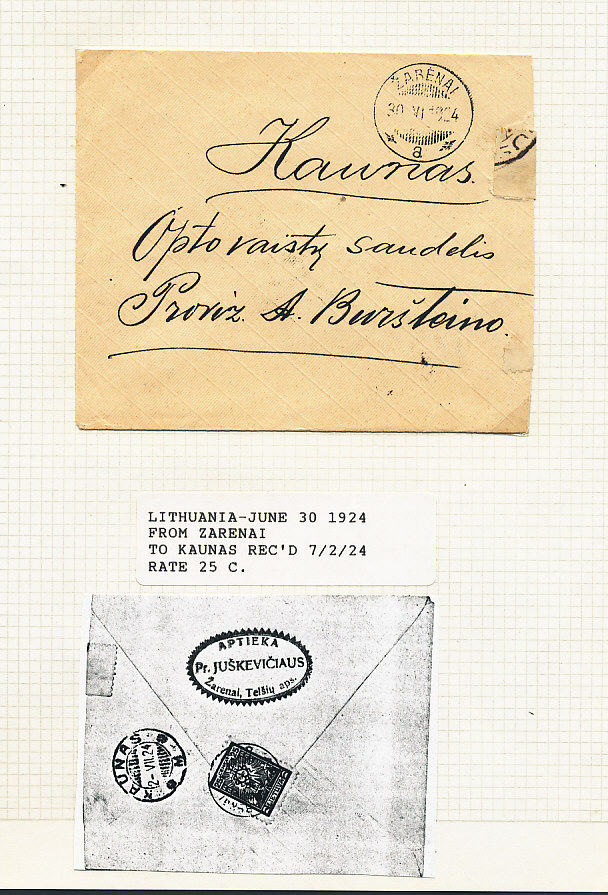 ŽARĖNAI
30 VI 1924
a
Kaunas.
Opto vaistų sandelis
Proviz. A. Buršteino.
LITHUANIA-JUNE 30 1924
FROM ZARENAI
TO KAUNAS REC'D 7/2/24
RATE 25 C.
APTIEKA
Pr. JUŠKEVIČIAUS
Žarenai, Telšių aps.
KAUNAS
2- VII.24